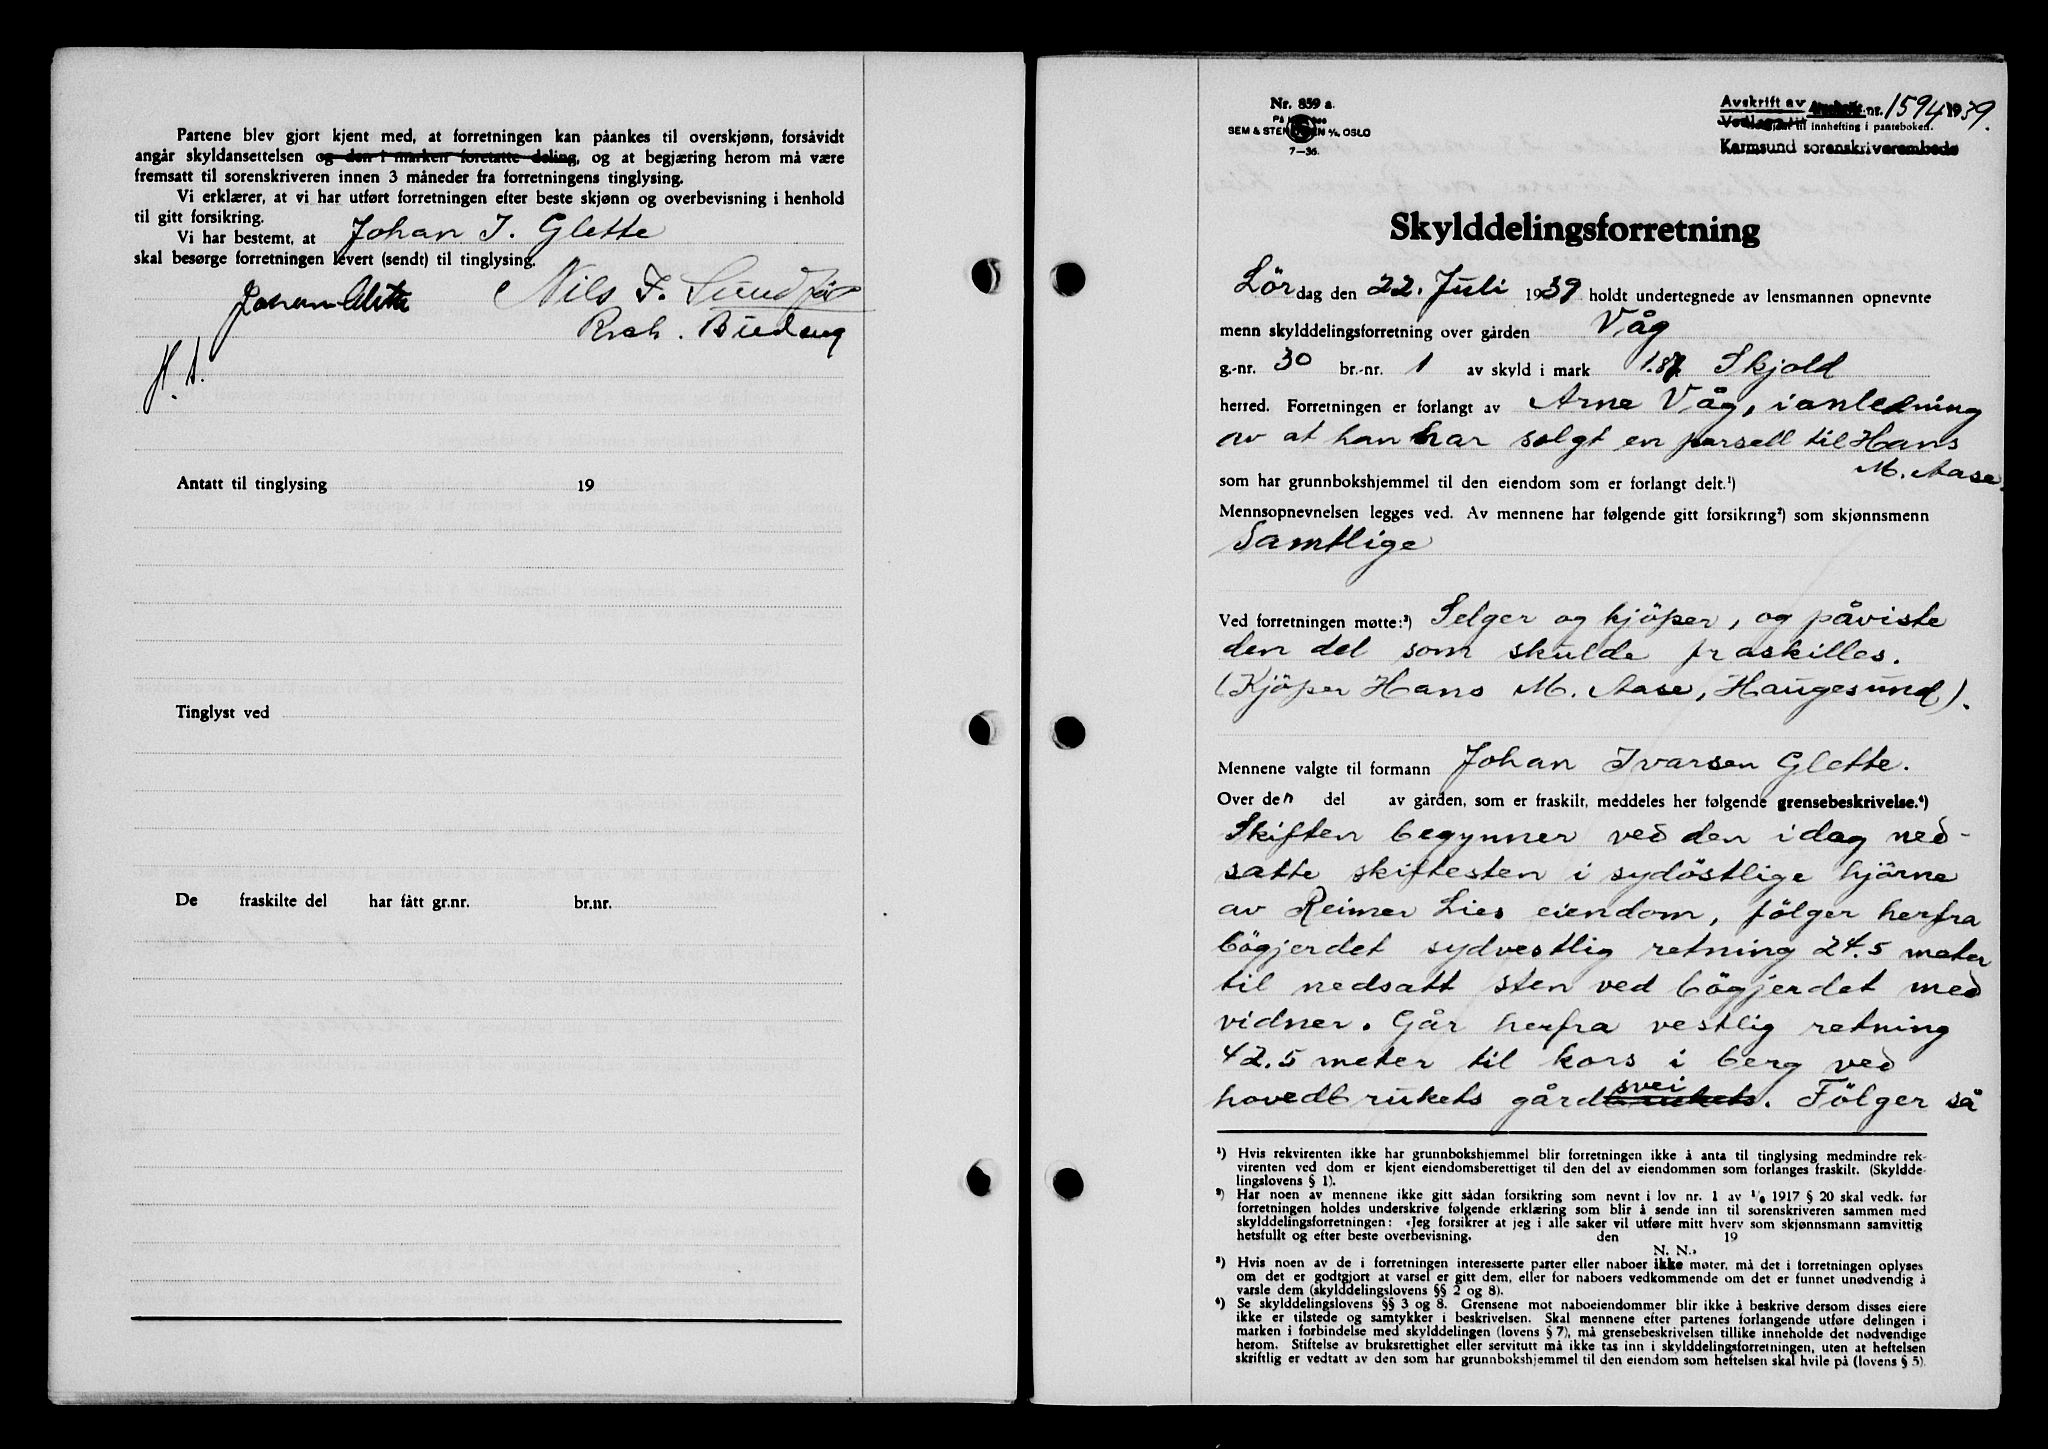 Partene blev gjort kjent med, at forretningen kan påankes til overskjønn, forsåvidt
angår skyldansettelsen og den i marken foretatte deling, og at begjæring herom må være
fremsatt til sorenskriveren innen 3 måneder fra forretningens tinglysing.
Vi erklærer, at vi har utført forretningen efter beste skjønn og overbevisning i henhold
til gitt forsikring.
Vi har bestemt, at Johan I. Glette
skal besørge forretningen levert (sendt) til tinglysing.
Johan Glette Nils F. Sundfør
Antatt til tinglysing 19
Tinglyst ved
De fraskilte del har fått gr.nr. br.nr.
Nr. 859 a.
SEM & STENERSEN A/S, OSLO
7—36.
Avskrift av nr. 1594 1939.
Vedlegg til innhefting i panteboken.
Karmsund sorenskriverembede
Skylddelingsforretning
Lördag den 22. Juli 1939 holdt undertegnede av lensmannen opnevnte
menn skylddelingsforretning over gården Våg
g.-nr. 30 br.-nr. 1 av skyld i mark 1.87 Skjold
herred. Forretningen er forlangt av Arne Våg, i anledning
av at han har solgt en parsell til Hans
M. Aase.
som har grunnbokshjemmel til den eiendom som er forlangt delt.¹)
Mennsopnevnelsen legges ved. Av mennene har følgende gitt forsikring²) som skjønnsmenn
Samtlige
Ved forretningen møtte:³) Selger og kjöper, og påviste
den del som skulde fraskilles.
(Kjöper Hans M. Aase, Haugesund).
Mennene valgte til formann Johan Ivarsen Glette.
Over den del av gården, som er fraskilt, meddeles her følgende grensebeskrivelse.⁴)
Skiften begynner ved den idag ned-
satte skiftesten i sydöstlige hjörne
av Reimer Lies eiendom, fölger herfra
bögjerdet sydvestlig retning 24.5 meter
til nedsatt sten ved bögjerdet med
vidner. Går herfra vestlig retning
42.5 meter til kors i berg ved
svei
hovedbrukets gårdbrukets. Fölger så
¹) Hvis rekvirenten ikke har grunnbokshjemmel blir forretningen ikke å anta til tinglysing medmindre rek-
virenten ved dom er kjent eiendomsberettiget til den del av eiendommen som forlanges fraskilt. (Skyldde-
lingslovens § 1).
²) Har noen av mennene ikke gitt sådan forsikring som nevnt i lov nr. 1 av ¹/₆ 1917 § 20 skal vedk. før
forretningen holdes underskrive følgende erklæring som blir å sende inn til sorenskriveren sammen med
skylddelingsforretningen: «Jeg forsikrer at jeg i alle saker vil utføre mitt hverv som skjønnsmann samvittig
hetsfullt og efter beste overbevisning. den 19
N. N.»
³) Hvis noen av de i forretningen interesserte parter eller naboer ikke møter, må det i forretningen oplyses
om det er godtgjort at varsel er gitt dem, eller for naboers vedkommende om det er funnet unødvendig å
varsle dem (skylddelingslovens §§ 2 og 8).
⁴) Se skylddelingslovens §§ 3 og 8. Grensene mot naboeiendommer blir ikke å beskrive dersom disses eiere
ikke er tilstede og samtykker i beskrivelsen. Skal mennene efter partenes forlangende utføre delingen i
marken i forbindelse med skylddelingen (lovens § 7), må grensebeskrivelsen tillike inneholde det nødvendige
herom. Stiftelse av bruksrettighet eller servitutt må ikke tas inn i skylddelingsforretningen, uten at heftelsen
skriftlig er vedtatt av den som har grunnbokshjemmel til den eiendom som heftelsen skal hvile på (lovens § 5).